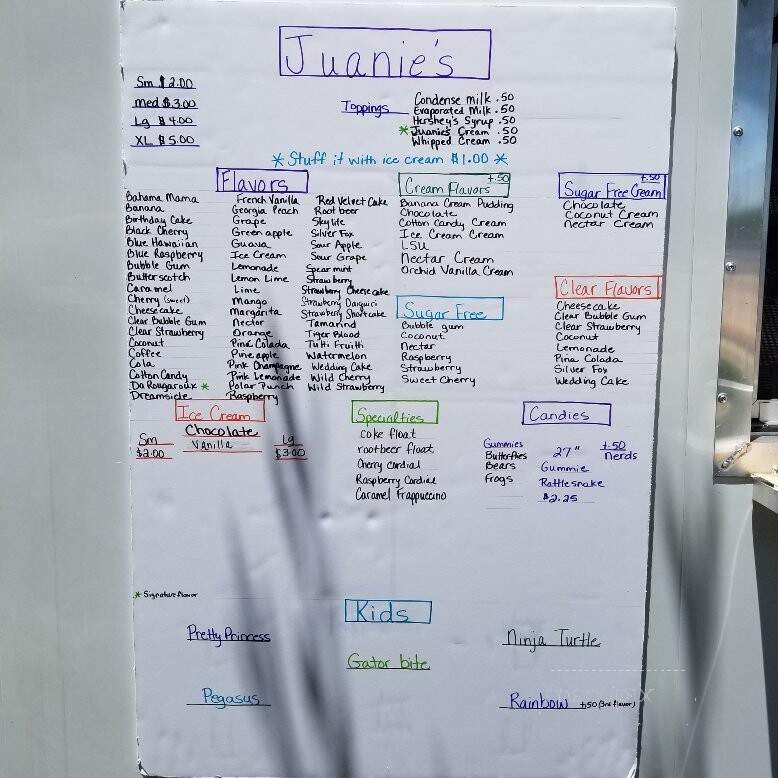 Juanie's
Sm $2.00
med $3.00
Lg $4.00
XL $5.00
Toppings
Condense milk .50
Evaporated Milk .50
Hershey's Syrup .50
* Juanie's Cream .50
Whipped Cream .50
* Stuff it with ice cream $1.00 *
Flavors
Bahama Mama
Banana
Birthday Cake
Black Cherry
Blue Hawaiian
Blue Raspberry
Bubble Gum
Butterscotch
Caramel
Cherry (sweet)
Cheesecake
Clear Bubble Gum
Clear Strawberry
Coconut
Coffee
Cola
Cotton Candy
Da Rougaroux *
Dreamsicle
French Vanilla
Georgia Peach
Grape
Green apple
Guava
Ice Cream
Lemonade
Lemon Lime
Lime
Mango
Margarita
Nectar
Orange
Pina Colada
Pineapple
Pink Champagne
Pink Lemonade
Polar Punch
Raspberry
Red Velvet Cake
Root beer
Skylite
Silver Fox
Sour Apple
Sour Grape
Spear mint
Strawberry
Strawberry Cheesecake
Strawberry Daiquiri
Strawberry Shortcake
Tamarind
Tiger Blood
Tutti Fruitti
Watermelon
Wedding Cake
Wild Cherry
Wild Strawberry
+.50
Cream Flavors
Banana Cream Pudding
Chocolate
Cotton Candy Cream
Ice Cream Cream
LSU
Nectar Cream
Orchid Vanilla Cream
Sugar Free
Bubble gum
Coconut
Nectar
Raspberry
Strawberry
Sweet Cherry
+.50
Sugar Free Cream
Chocolate
Coconut Cream
Nectar Cream
Clear Flavors
Cheesecake
Clear Bubble Gum
Clear Strawberry
Coconut
Lemonade
Pina Colada
Silver Fox
Wedding Cake
Ice Cream
Chocolate
Vanilla
Sm
$2.00
Lg
$3.00
Specialties
coke float
rootbeer float
Cherry Cordial
Raspberry Cordial
Caramel Frappuccino
Candies
Gummies
Butterflies
Bears
Frogs
27"
Gummie
Rattlesnake
$2.25
+.50
nerds
* Signature flavor
Kids
Pretty Princess
Ninja Turtle
Gator bite
Pegasus
Rainbow +.50 (3rd flavor)